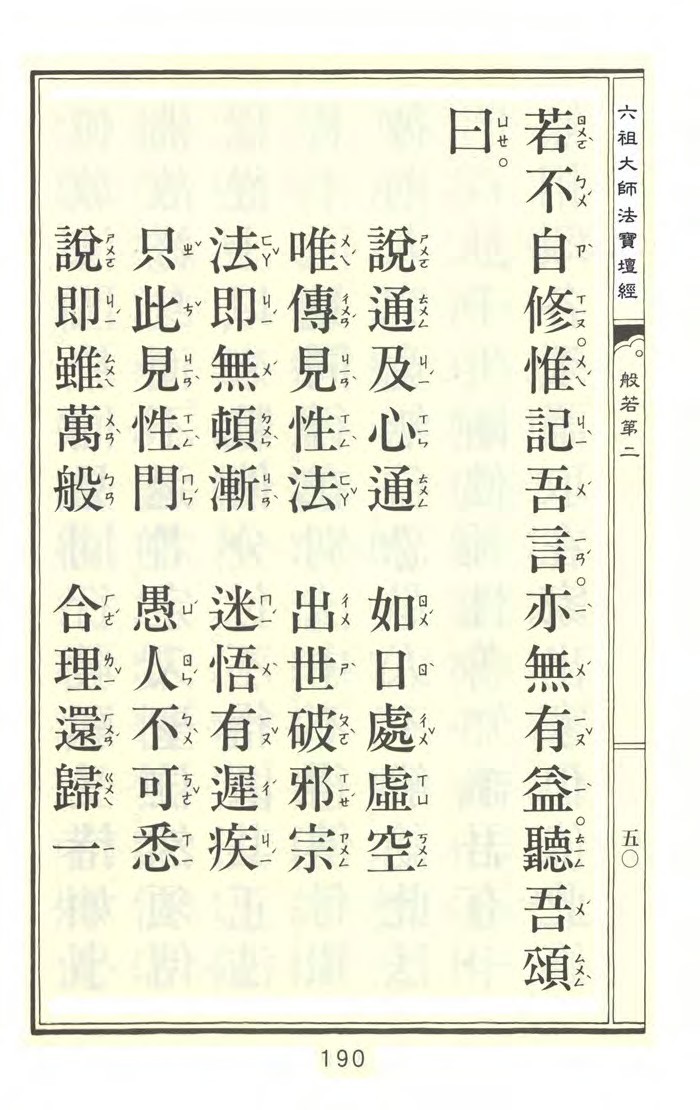 六祖大師法寶壇經
般若第二
五〇
若不自修。惟記吾言。亦無有益。聽吾頌
曰。
說通及心通 如日處虛空
唯傳見性法 出世破邪宗
法即無頓漸 迷悟有遲疾
只此見性門 愚人不可悉
說即雖萬般 合理還歸一
190